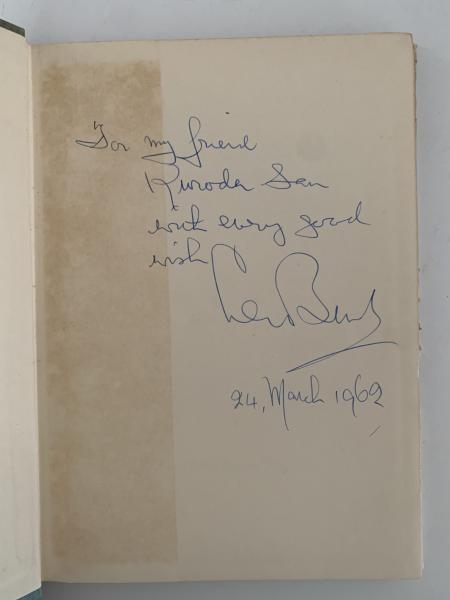 For my friend
Kuroda San
with every good
wish
24, March 1962